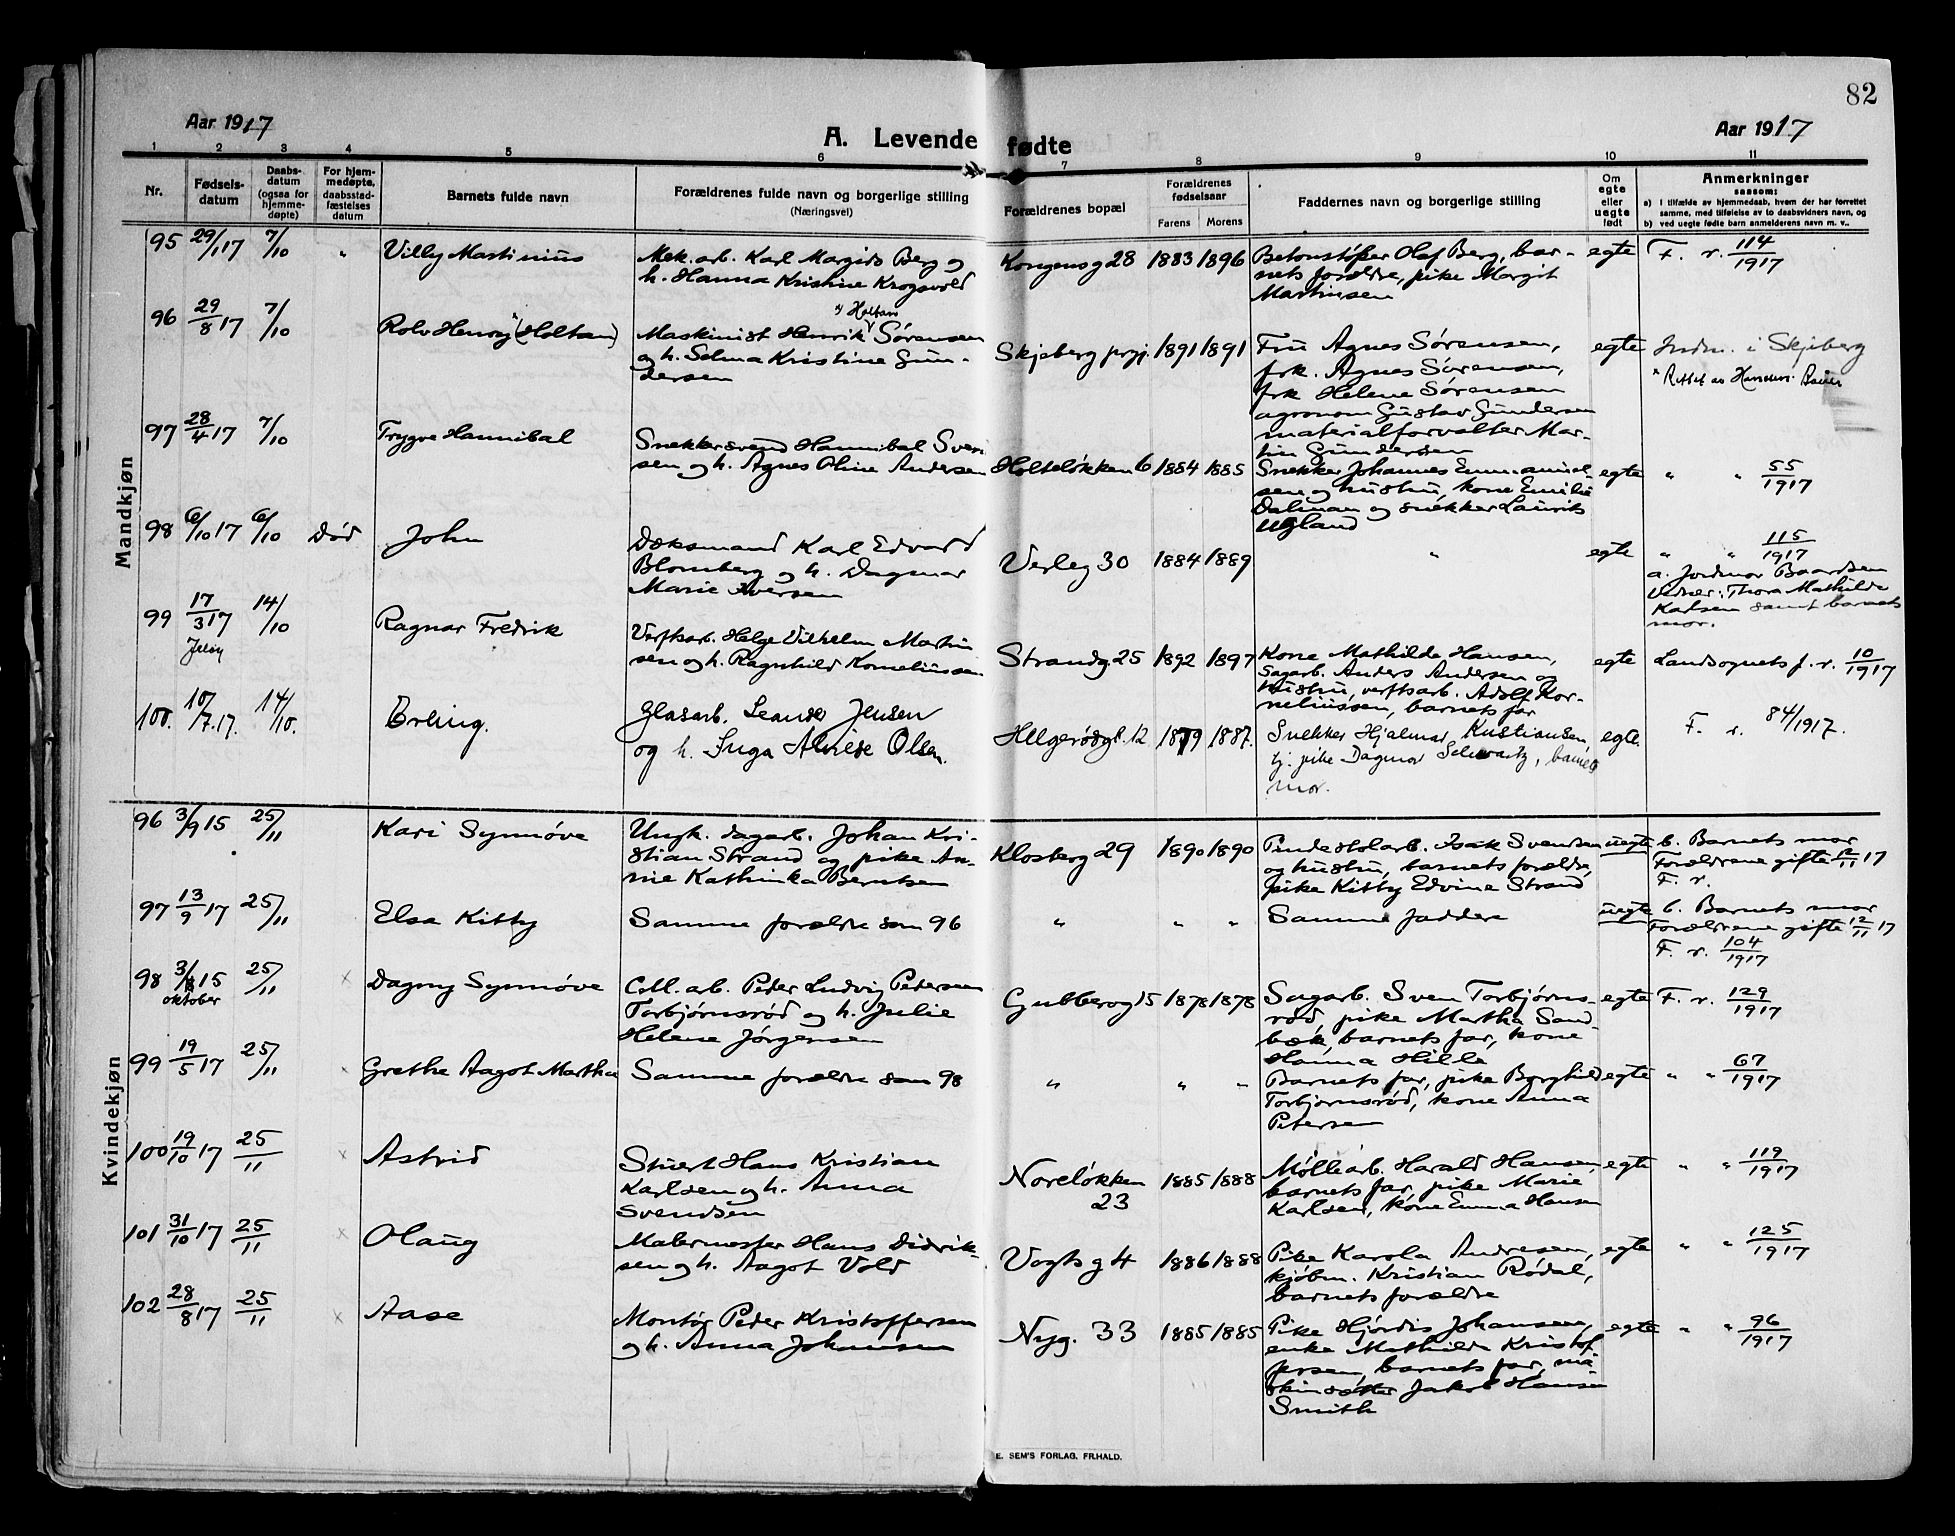 82
Aar 1917
A. Levende fødte
Aar 1917
1 2 3 4 5 6 7 8 9 10 11
Nr.
Fødsels-
datum
Daabs-
datum
(ogsaa for
hjemme-
døpte)
For hjem-
medøpte,
daabsstad-
fæstelses
datum
Barnets fulde navn
Forældrenes fulde navn og borgerlige stilling
(Næringsvei)
Forældrenes bopæl
Forældrenes
fødselsaar
Farens Morens
Faddernes navn og borgerlige stilling
Om
egte
eller
uegte
født
Anmerkninger
saasom:
a) I tilfælde av hjemmedaab, hvem der har forrettet
samme, med tilføielse av to daabsvidners navn, og
b) ved uegte fødte barn anmelderens navn m. v..
Mandkjøn
95 29/1 17 7/10 "
Villy Martinius
Mek. arb. Karl Margido Berg og
h. Hanna Kristine Krogsvold
Kongensg 28 1883 1896
Betonstøper Olaf Berg, bar-
nets forældre, pike Margit
Martinsen
egte
F. r. 114/1917
96 29/8 17 7/10
Rolv Henry x (Holtan)
x) Holtan
Maskinist Henrik Sørensen
og h. Selma Kristine Gun-
dersen
Skjeberg prgj. 1891 1891
Fru Agnes Sørensen,
frk. Agnes Sørensen,
frk Helene Sørensen
agronom Gustav Gundersen
materialforvalter Mar-
tin Gundersen
egte
Indm. i Skjeberg
x Rettet av
97 28/4 17 7/10
Trygve Hannibal
Snekkersvend Hannibal Sven
sen og h. Agnes Oline Andersen
Holteløkken 6 1884 1885
Snekker Johannes Emmanuel-
sen og hustru, kone Emilie
Dalman og snekker Laurits
Ugland
egte
" " 55/1917
98 6/10 17 6/10 Død
John
Dæksmand Karl Edvard
Blomberg og h. Dagmar
Marie Iversen
Verleg 30 1884 1889
"
egte
" " 115/1917
a. Jordmor Baardsen
Vidner: Thora Mathilde
Karlsen samt barnets
mor.
99 17/3 17 14/10
Jeløy
Ragnar Fredrik
Verftsarb. Helge Vilhelm Martin
sen og h. Ragnhild Korneliussen
Strandg 25 1892 1897
Kone Mathilde Hansen,
Sagarb. Anders Andersen og
hustru, verftsarb. Adolf Kor-
neliussen, barnets far
egte
Landsognets f. r. 10/1917
100. 10/7.17. 14/10.
Erling.
Glasarb. Leander Jensen
og h. Inga Alvide Olsen.
Helgerødgt. 12 1879 1887.
Snekker Hjalmar Kristiansen,
tj. pike Dagmar Schwartz, barnets
mor.
egte.
F. r. 84/1917.
Kvindekjøn
96 3/9 15 25/11
Kari Synnøve
Ungk. dagarb. Johan Kri-
stian Strand og pike An-
nie Kathinka Berntsen
Klosberg 29 1890 1890
Pindeskolarb. Isak Svendsen
og hustru, barnets forældre,
pike Kitty Edvine Strand
uegte
b. Barnets mor
Forældrene gifte 12/11 17
F. r.
97 13/9 17 25/11
Elsa Kitty
Samme forældre som 96
" " "
Samme faddere
uegte
b. Barnets mor
Forældrene gifte 12/11 17
F. r. 104/1917
98 3/ 15 25/11 x
oktober
Dagny Synnøve
Cell. arb. Peder Ludvig Petersen
Torbjørnsrød og h. Julie
Helene Jørgensen
Gubberog 15 1878 1878
Sagarb. Sven Torbjørns-
rød, pike Martha Sand-
bæk, barnets far, kone
Hanna Hille
egte
F. r. 129/1917
99 19/5 17 25/11 x
Grethe Aagot Martha
Samme forældre som 98
" " "
Barnets far, pike Borghild
Torbjørnsrød, kone Anna
Petersen
egte
" " 67/1917
100 19/10 17 25/11 x
Astrid
Stuert Hans Kristian
Karlsen og h. Anna
Svendsen
Noreløkken
23
1885 1888
Møllearb. Harald Hansen,
barnets far, pike Marie
Karlsen, kone Emma Hansen
egte
" " 119/1917
101 31/10 17 25/11 x
Olaug
Malermester Hans Didrik-
sen og h. Aagot Vold
Vogts g 4 1886 1888
Pike Karola Andresen,
kjøbm. Kristian Rødal,
barnets forældre
egte
" " 125/1917
102 28/8 17 25/11 x
Aase
Montør Peder Kristoffersen
og h. Anna Johansen
Nyg. 33 1885 1885
Pike Hjørdis Johansen,
enke Mathilde Kristof
fersen, barnets far, ma
skinsætter Jakob Hansen
Smith
egte
" " 96/1917
E. SEM'S FORLAG. FR.HALD.